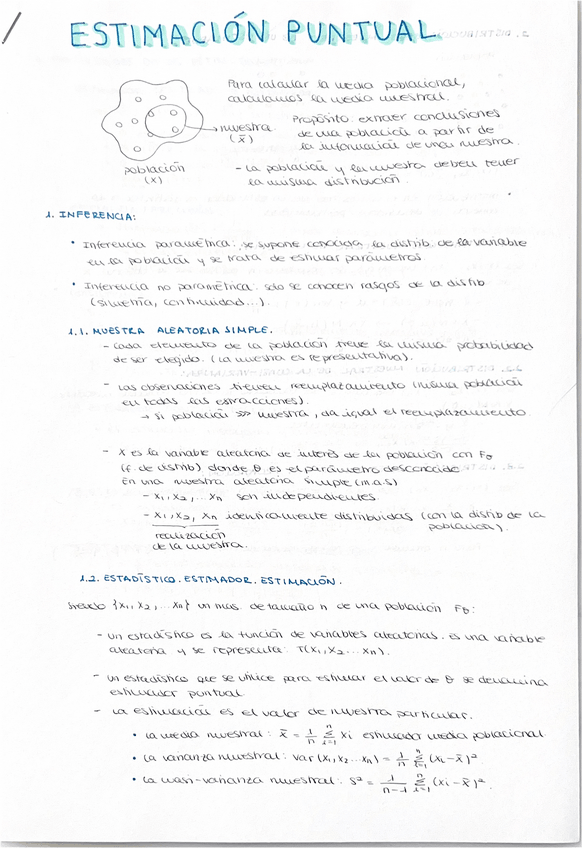 ESTIMACIÓN PUNTUAL
Para calcular la media poblacional,
calculamos la media muestral.
Propósito: extraer conclusiones
de una población a partir de
la información de una muestra.
muestra
(x̄)
población
(X)
- La población y la muestra deben tener
la misma distribución.
1. INFERENCIA:
• Inferencia paramétrica: se supone conocida la distrib. de la variable
en la población y se trata de estimar parámetros.
• Inferencia no paramétrica: sólo se conocen rasgos de la distrib.
(simetría, continuidad...).
1.1. MUESTRA ALEATORIA SIMPLE.
- Cada elemento de la población tiene la misma probabilidad
de ser elegido. (La muestra es representativa).
- Las observaciones tienen reemplazamiento (misma población
en todas las extracciones).
→ Si población >>> muestra, da igual el reemplazamiento.
- X es la variable aleatoria de interés de la población con Fθ
(f. de distrib) donde θ es el parámetro desconocido
En una muestra aleatoria simple (m.a.s)
- X₁, X₂, ... Xn son independientes.
- X₁, X₂, Xn identicamente distribuidas (con la distrib de la
población).
realización
de la muestra.
1.2. ESTADÍSTICO. ESTIMADOR. ESTIMACIÓN.
Siendo {X₁, X₂, ... Xn} un mas. de tamaño n de una población Fθ:
- un estadístico es la función de variables aleatorias. es una variable
aleatoria y se representa: T(X₁, X₂ ... Xn).
- un estadístico que se utilice para estimar el valor de θ se denomina
estimador puntual
- La estimación es el valor de muestra particular.
• La media muestral: x̄ = 1/n Σⁿᵢ₌₁ xi estimada media poblacional.
• La varianza muestral: var (X₁, X₂ ... Xn) = 1/n Σⁿᵢ₌₁ (xi - x̄)².
• La cuasi-varianza muestral: S² = 1/(n-1) Σⁿᵢ₌₁ (xi - x̄)².